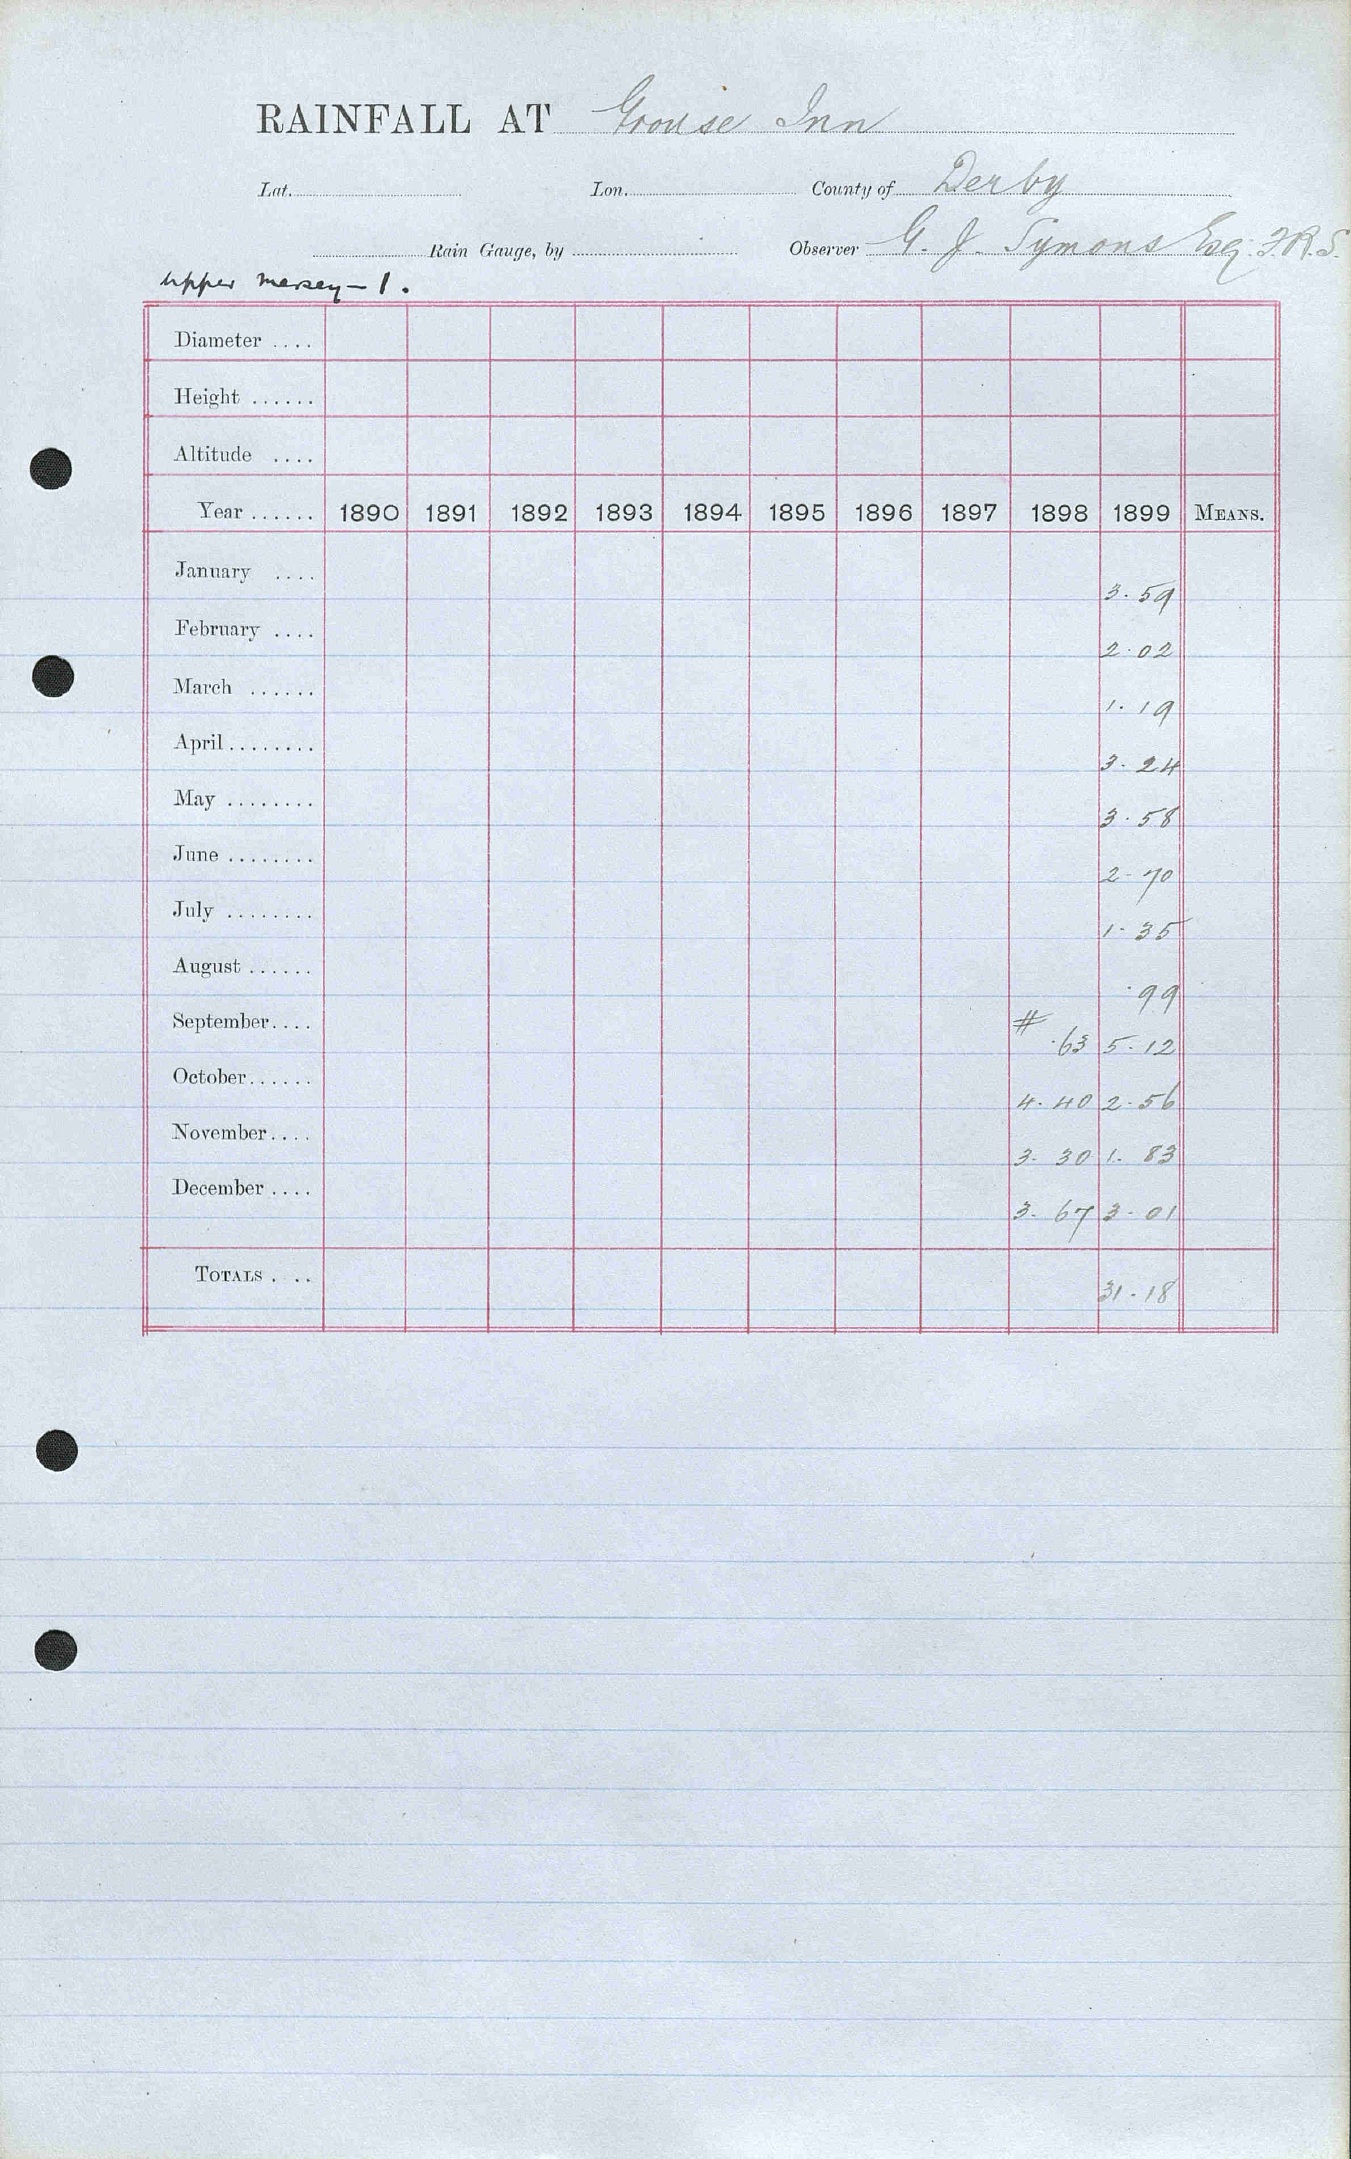 RAINFALL AT Grouse Inn
Lat. Lon. County of Derby
Rain Gauge, by Observer G. J. Symons Esq. F.R.S.
Upper Mersey — 1.
Diameter ....
Height ......
Altitude ....
Year ...... 1890 1891 1892 1893 1894 1895 1896 1897 1898 1899 MEANS.
January .... 3.59
February .... 2.02
March ...... 1.19
April ........ 3.24
May ........ 3.58
June ........ 2.70
July ........ 1.35
August ...... .99
September.... # .63 5.12
October...... 4.40 2.56
November.... 3.30 1.83
December .... 3.67 3.01
TOTALS . .. 31.18